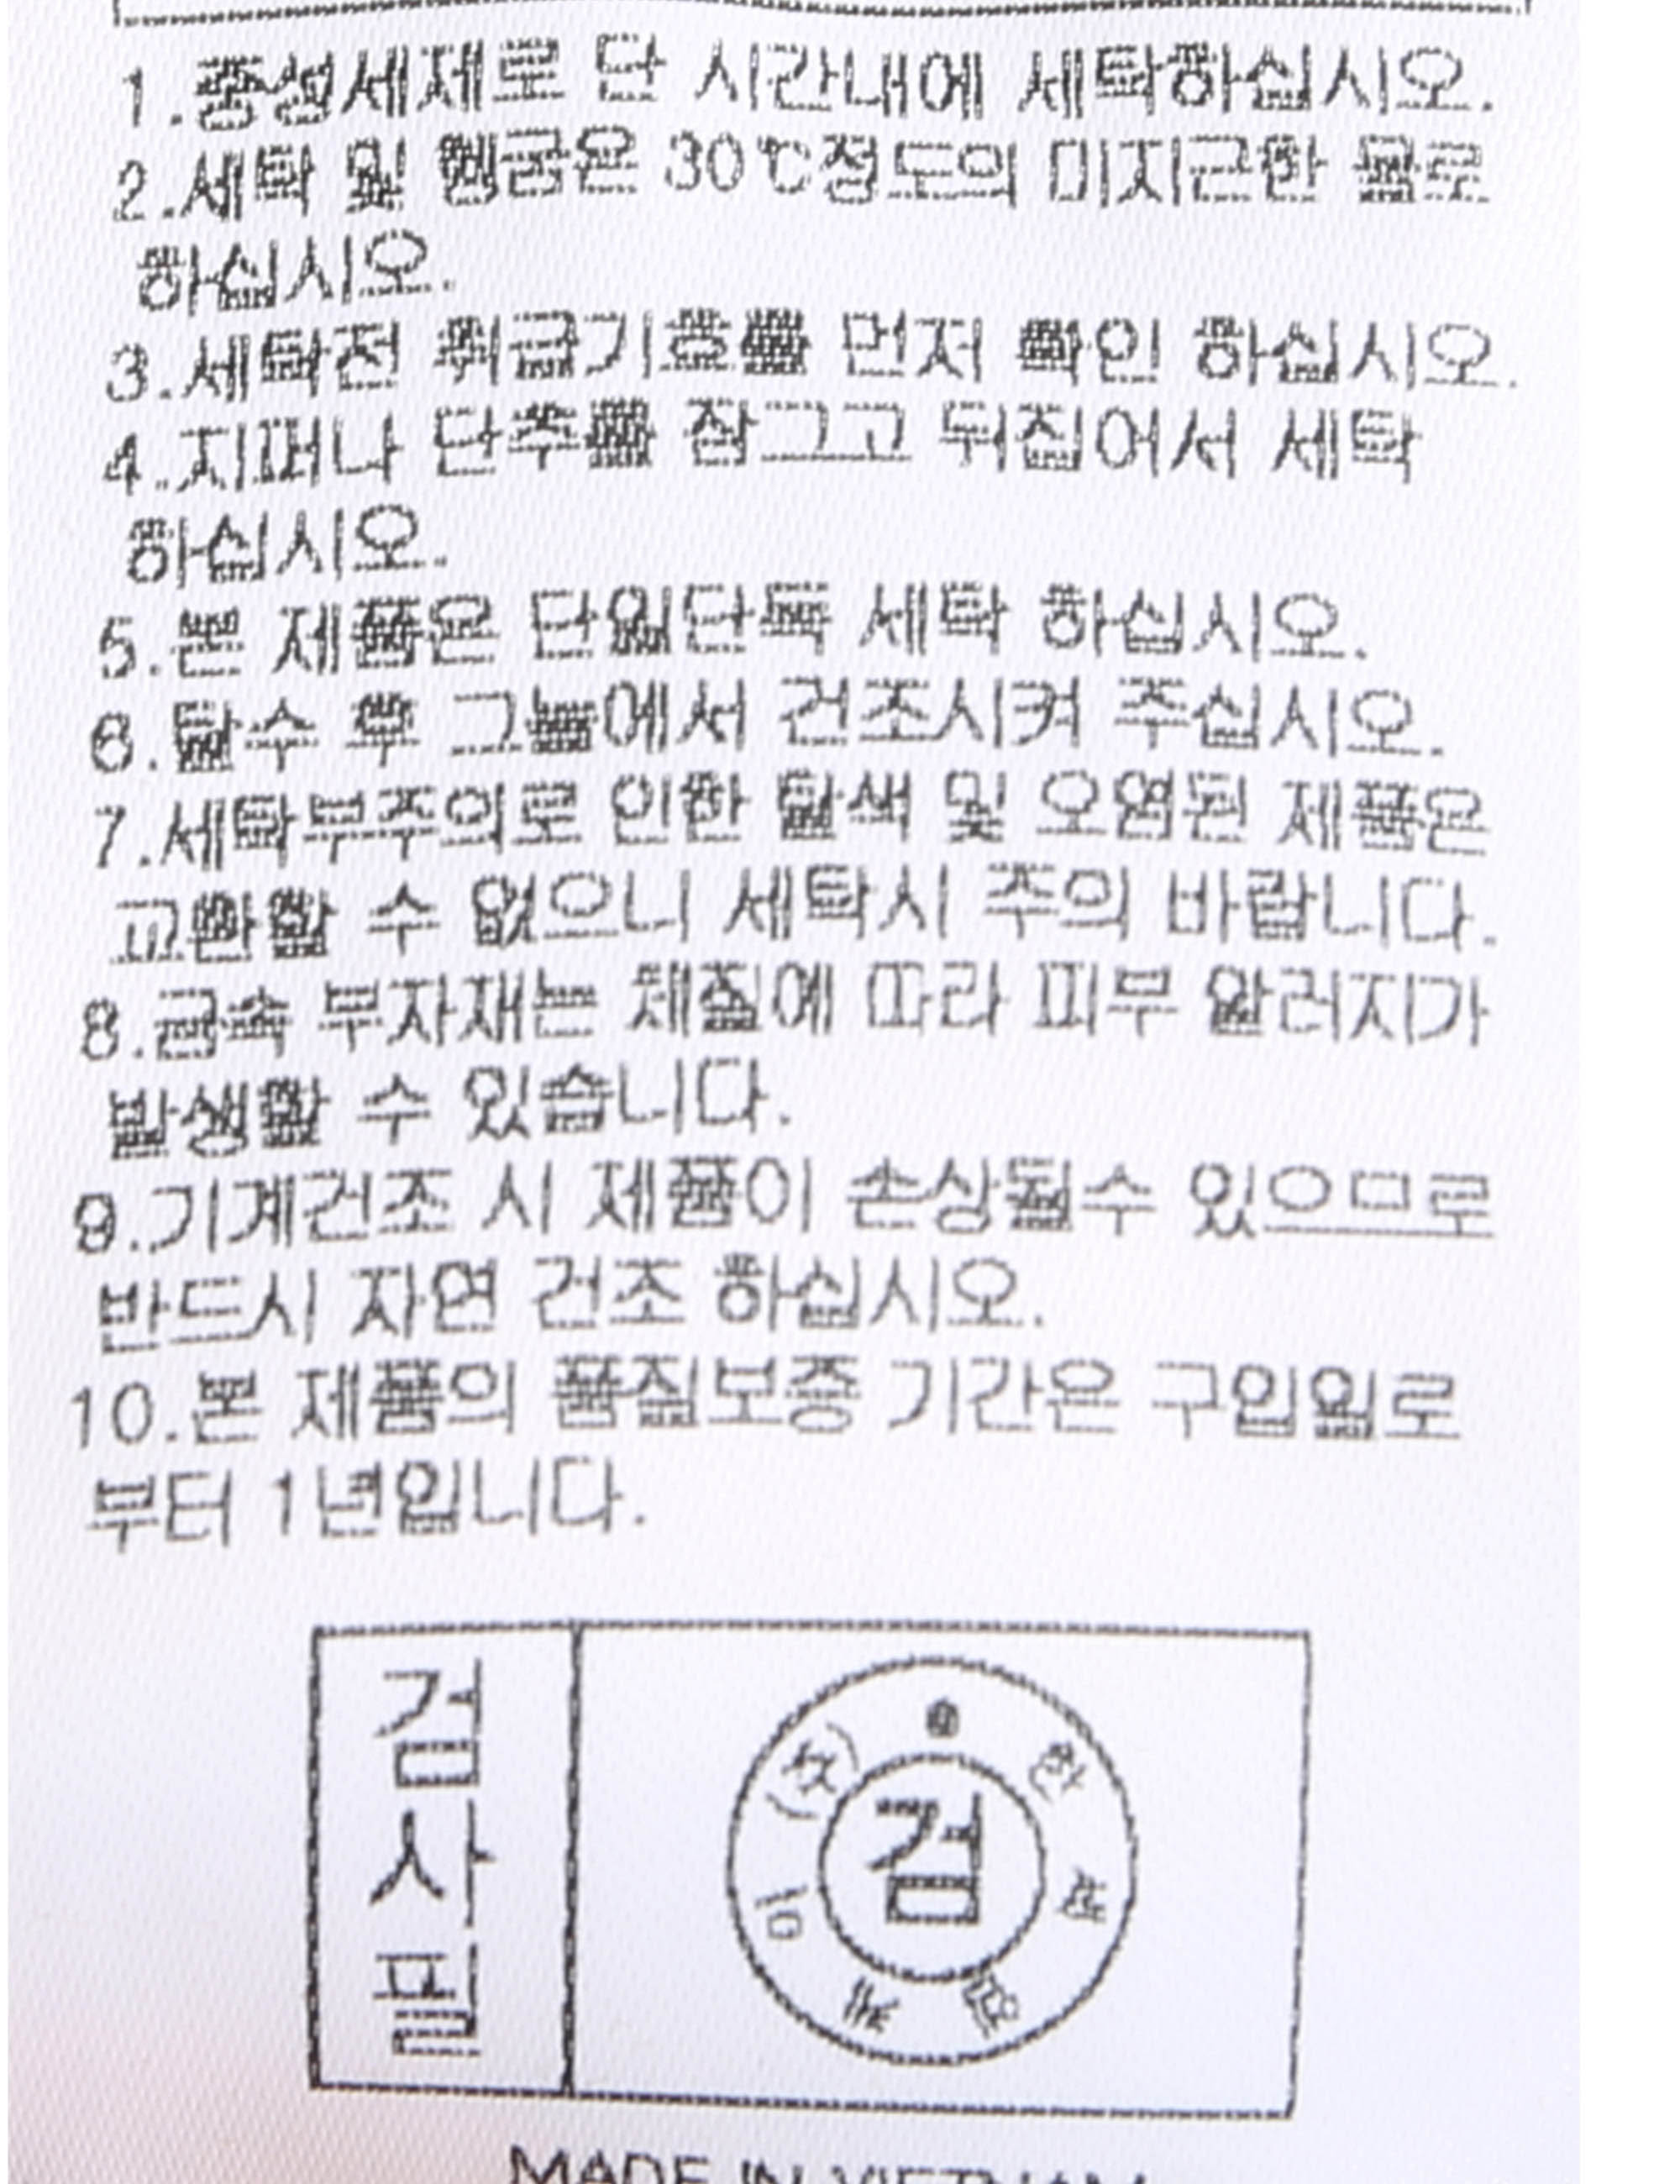 1.중성세제로 단 시간내에 세탁하십시오.
2.세탁 및 헹굼은 30℃정도의 미지근한 물로
하십시오.
3.세탁전 취급기호를 먼저 확인 하십시오.
4.지퍼나 단추를 잠그고 뒤집어서 세탁
하십시오.
5.본 제품은 단일단독 세탁 하십시오.
6.탈수 후 그늘에서 건조시켜 주십시오.
7.세탁부주의로 인한 탈색 및 오염된 제품은
교환할 수 없으니 세탁시 주의 바랍니다.
8.금속 부자재는 체질에 따라 피부 알러지가
발생할 수 있습니다.
9.기계건조 시 제품이 손상될수 있으므로
반드시 자연 건조 하십시오.
10.본 제품의 품질보증 기간은 구입일로
부터 1년입니다.
검사필
검
MADE IN VIETNAM